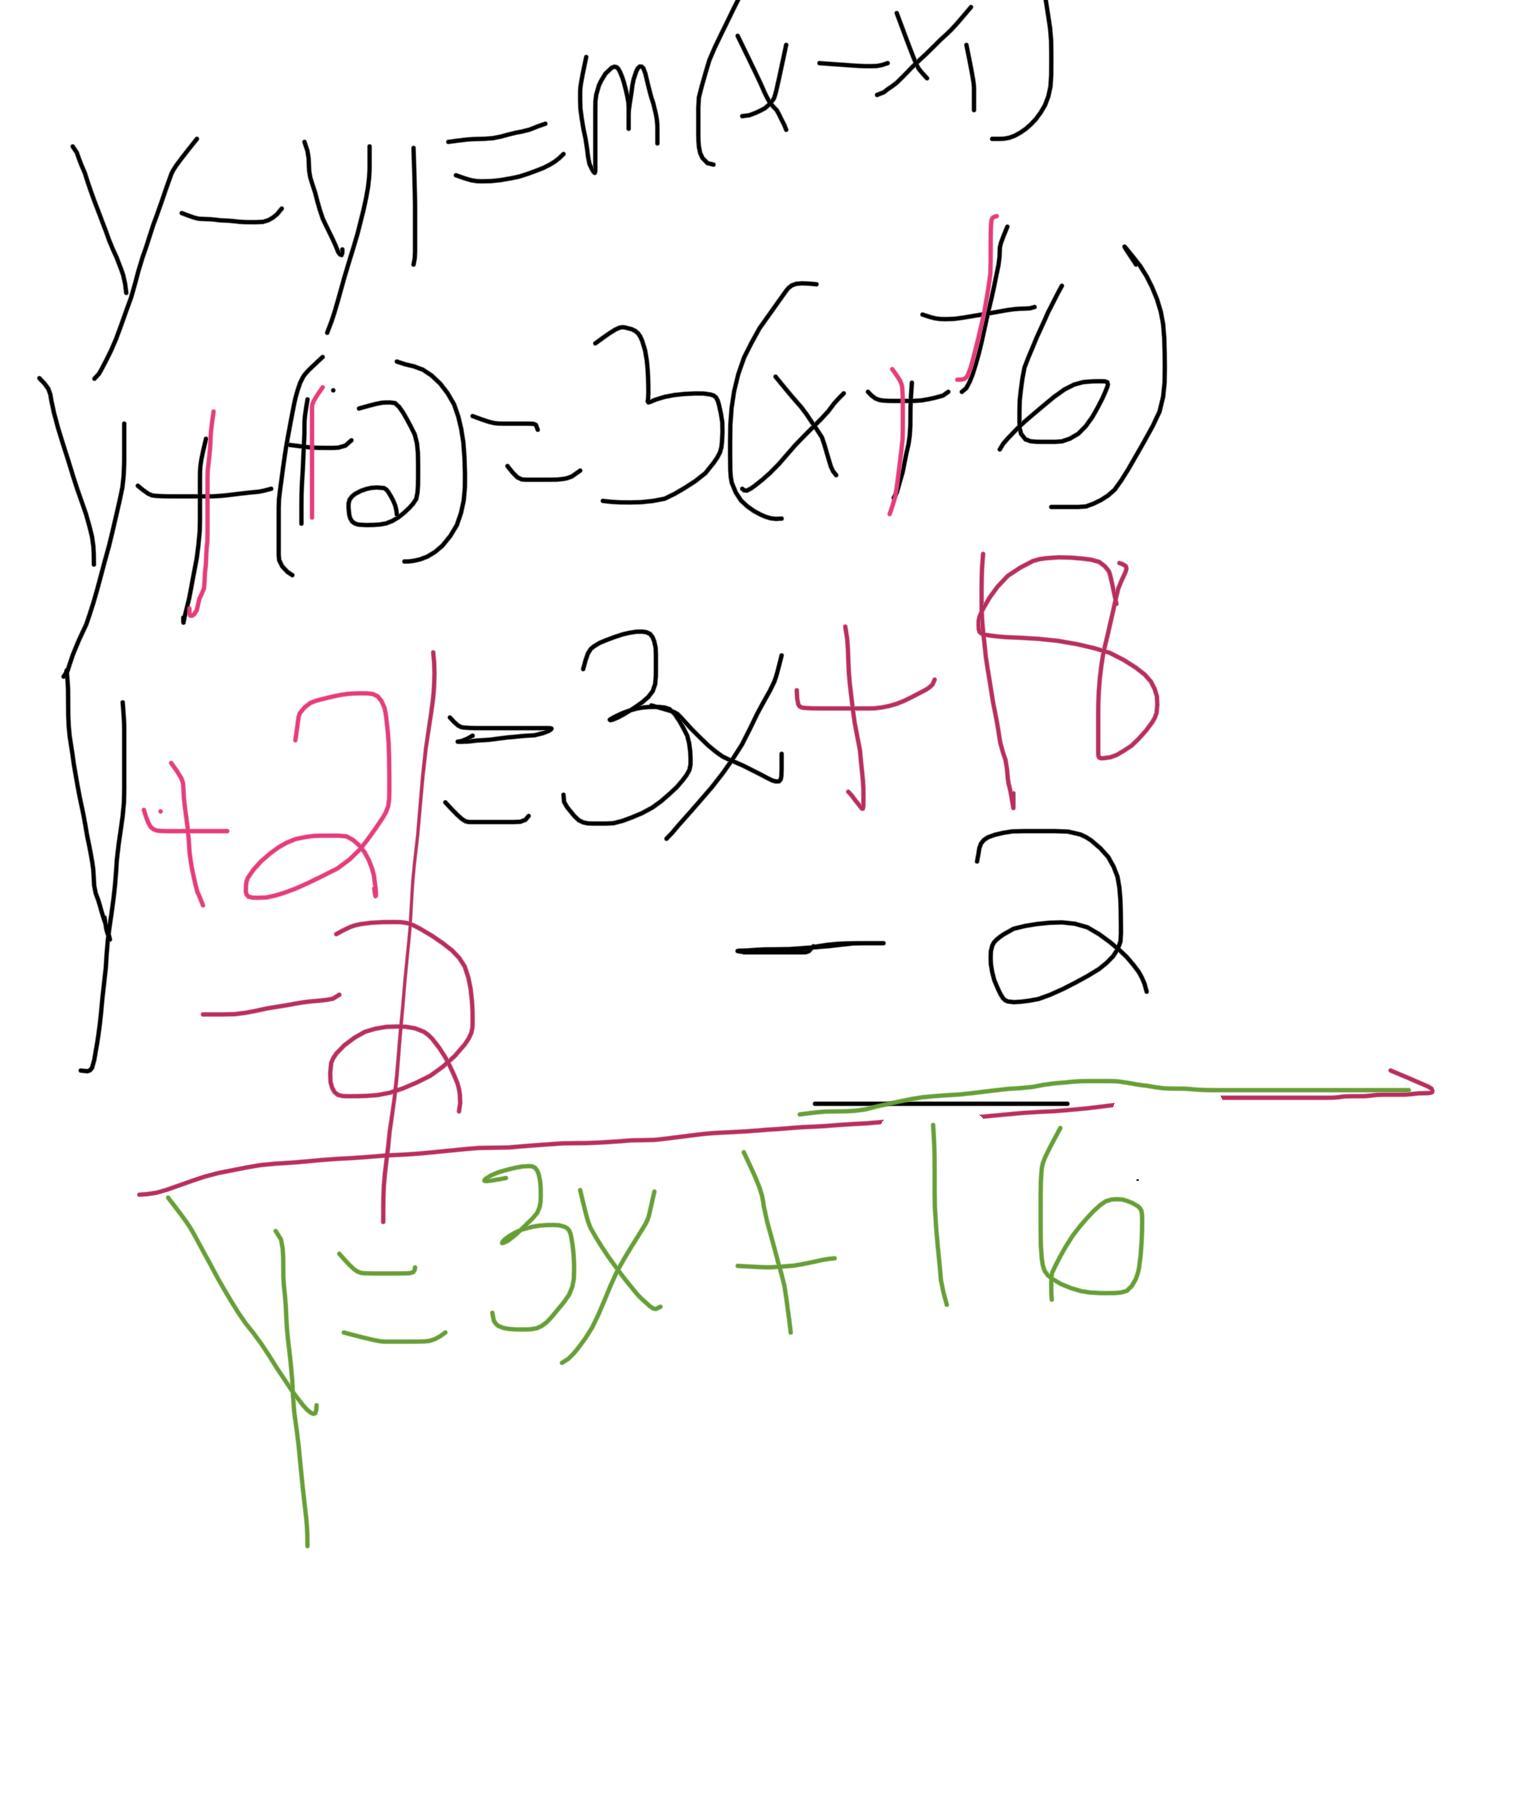 y - y1 = m(x - x1)
y + (+2) = 3(x + +6)
y + 2 = 3x + 18
- 2 - 2
y = 3x + 16